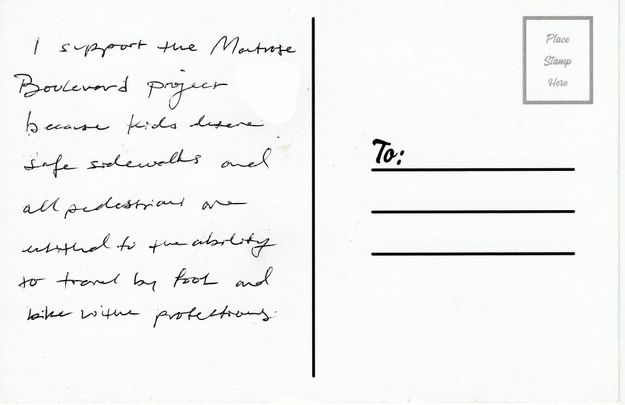 I support the Montrose
Boulevard project
because kids deserve
safe sidewalks and
all pedestrians are
entitled to the ability
to travel by foot and
bike protections.
Place
Stamp
Here
To: